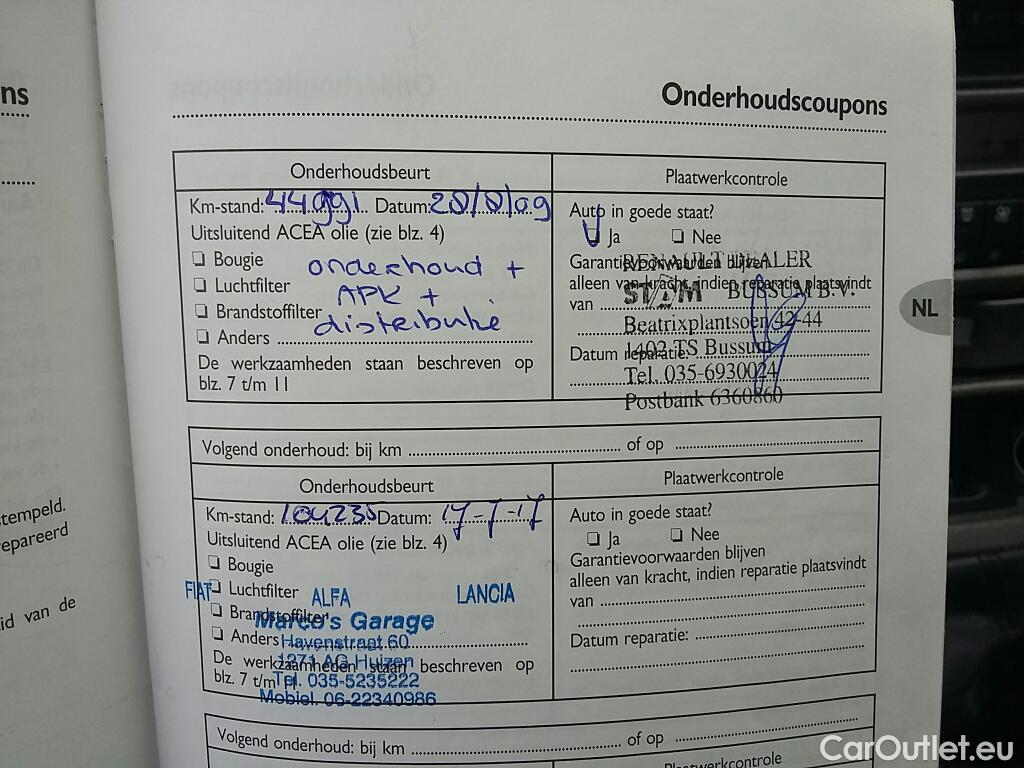 ns
Onderhoudscoupons
Onderhoudsbeurt
Km-stand: 44991 Datum: 28/8/09
Uitsluitend ACEA olie (zie blz. 4)
Bougie
Luchtfilter
Brandstoffilter
Anders
onderhoud +
APK +
distributie
De werkzaamheden staan beschreven op
blz. 7 t/m 11
Plaatwerkcontrole
Auto in goede staat?
Ja Nee
Garantievoorwaarden blijven
alleen van kracht, indien reparatie plaatsvindt
van
Datum reparatie:
RENAULT DEALER
STAM BUSSUM B.V.
Beatrixplantsoen 42-44
1402 TS Bussum
Tel. 035-6930024
Postbank 6360860
NL
Volgend onderhoud: bij km of op
Onderhoudsbeurt
Km-stand: 104235 Datum: 17-7-17
Uitsluitend ACEA olie (zie blz. 4)
Bougie
Luchtfilter
Brandstoffilter
Anders
De werkzaamheden staan beschreven op
blz. 7 t/m 11
FIAT ALFA LANCIA
Marco's Garage
Havenstraat 60
1271 AG Huizen
Tel. 035-5235222
Mobiel. 06-22340986
Plaatwerkcontrole
Auto in goede staat?
Ja Nee
Garantievoorwaarden blijven
alleen van kracht, indien reparatie plaatsvindt
van
Datum reparatie:
Volgend onderhoud: bij km of op
Plaatwerkcontrole
tempeld.
epareerd
id van de
CarOutlet.eu